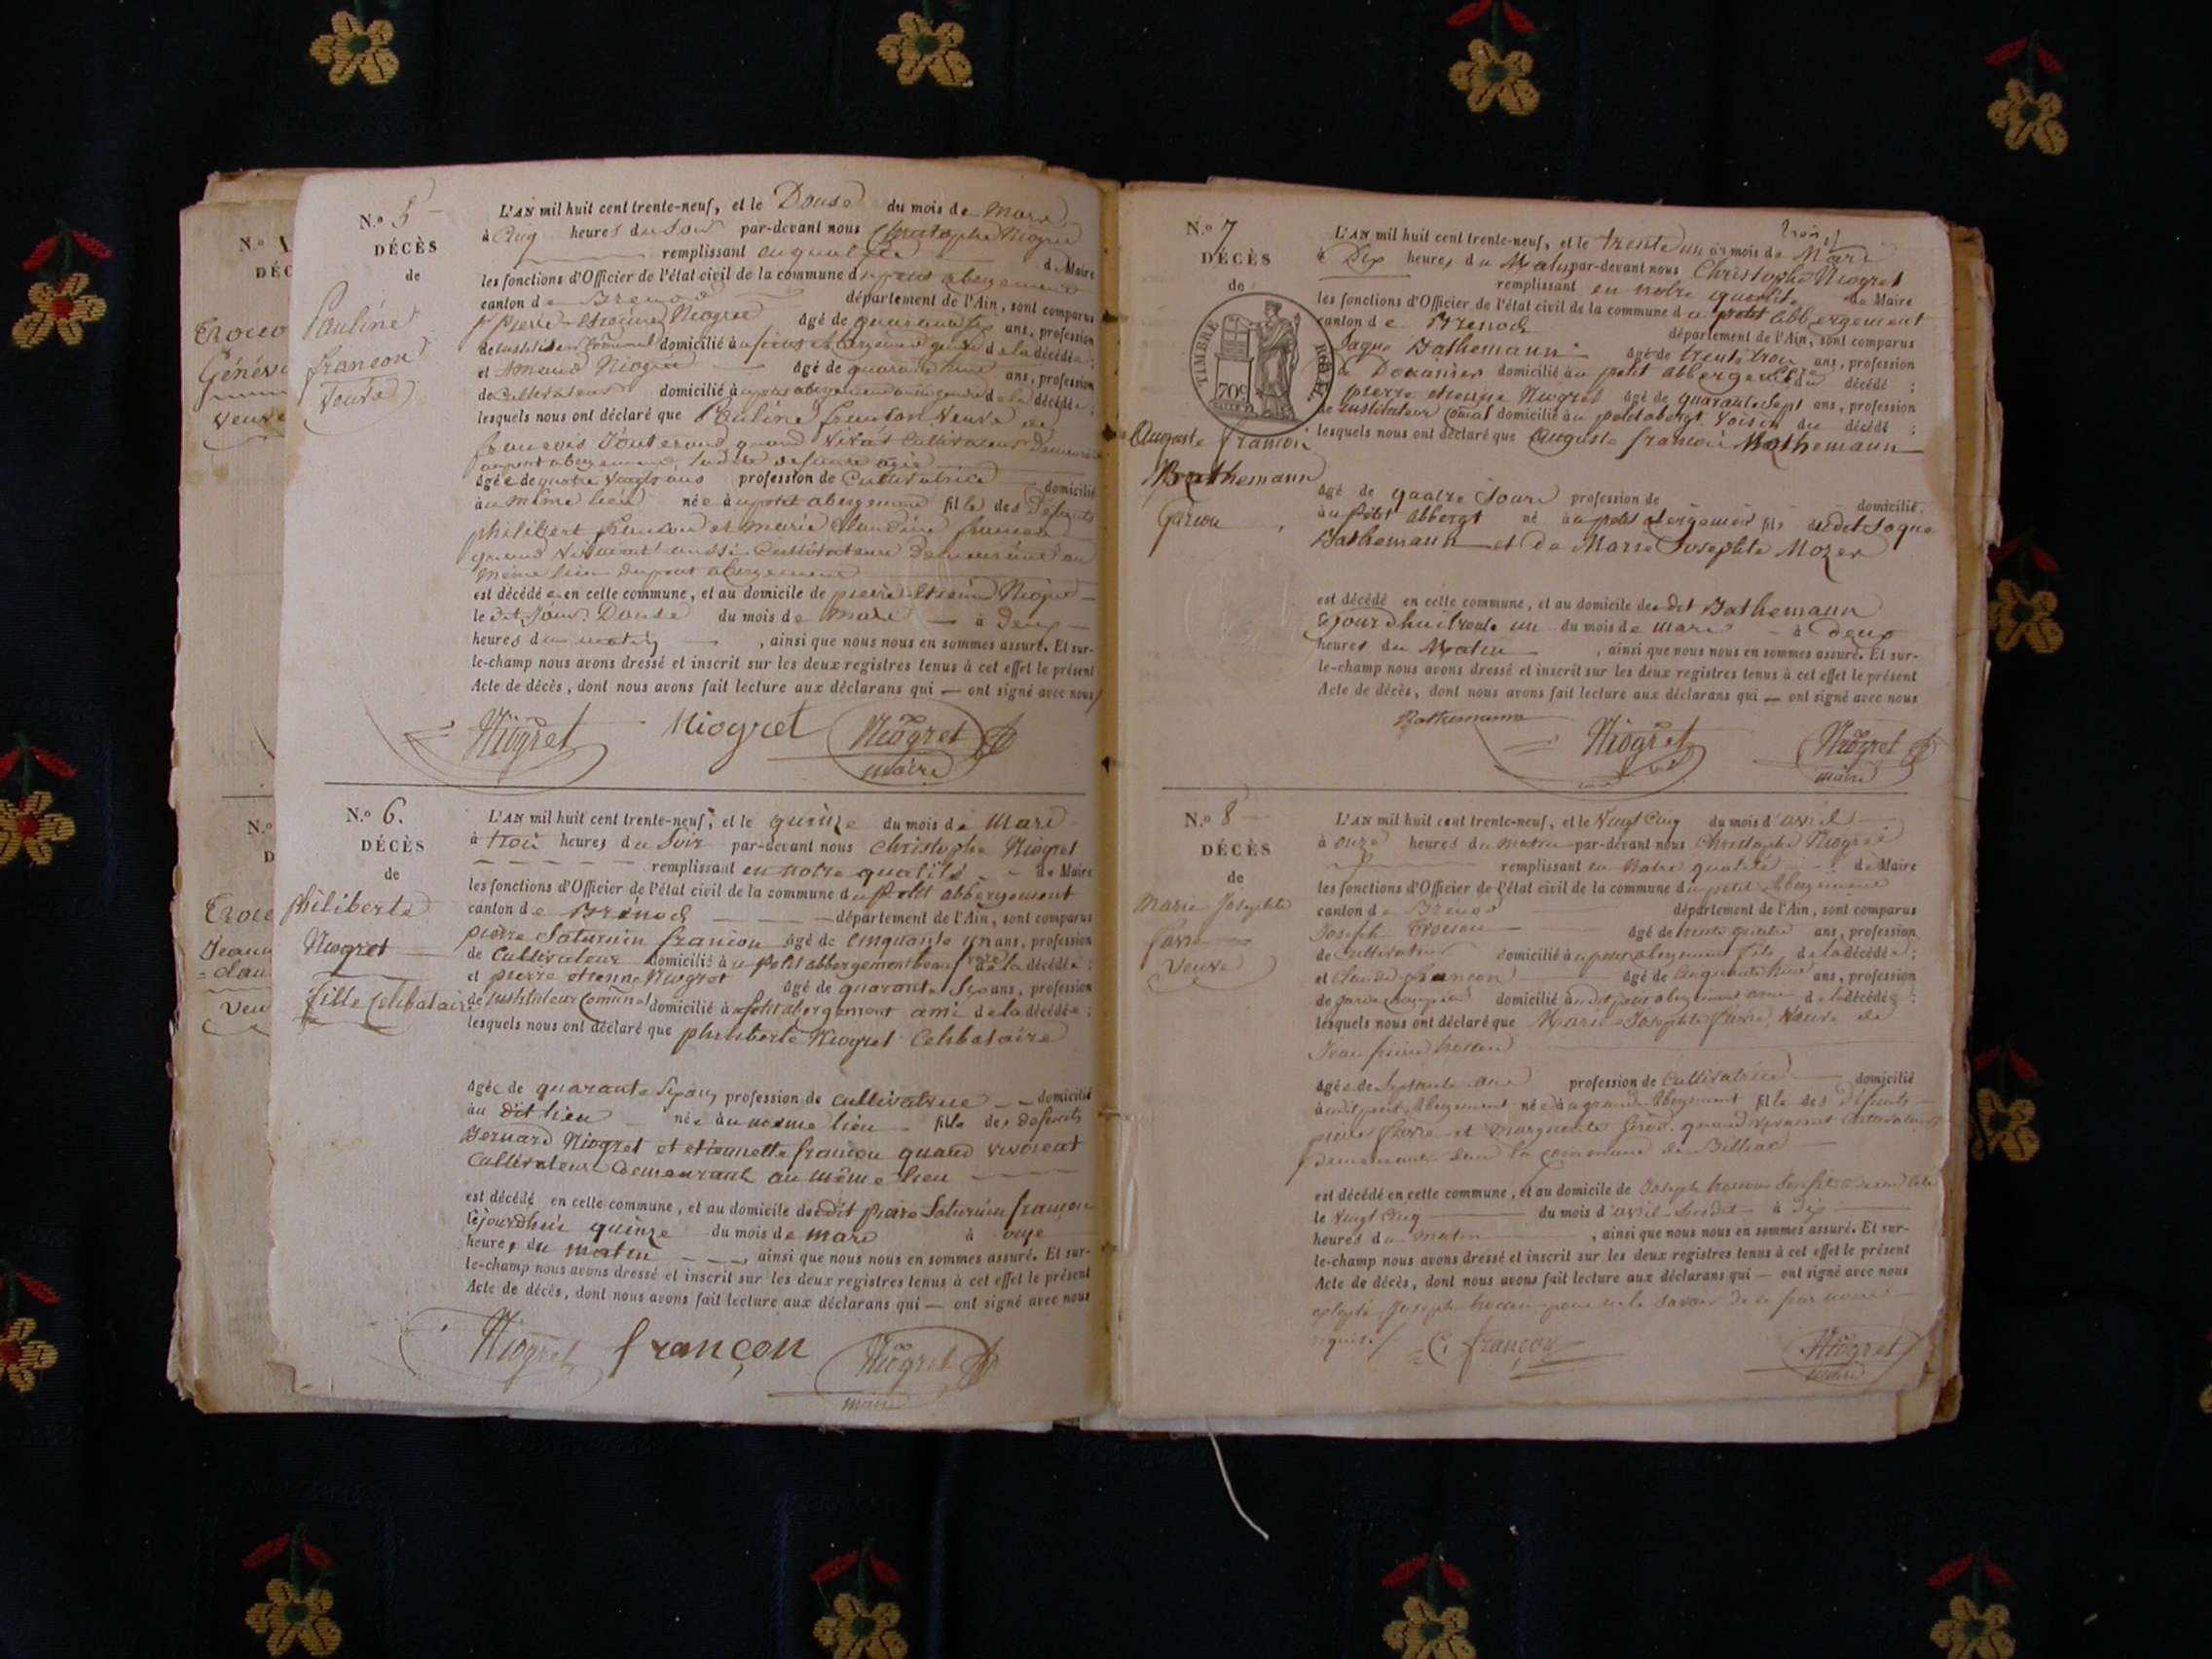 N.° 1
DÉC
Généve
veuve
N.°
D
Jeann
=clau
veu
N.° 5
DÉCÈS
de
Pauline
françon
Veuve
L'AN mil huit cent trente-neuf, et le Douse du mois de Mars
à Cinq heures du Soir par-devant nous Christophe Niogret
remplissant en qualité de Maire
les fonctions d'Officier de l'état civil de la commune du petit abergement
canton de Brenod département de l'Ain, sont comparus
pierre-etienne Niogret âgé de quarante six ans, profession
de instituteur Communal domicilié au petit abergement de la décédée ;
et Amand Niogret âgé de quarante huit ans, profession
de Cultivateur domicilié au petit abergement de la décédée ;
lesquels nous ont déclaré que Pauline françon Veuve de
francois quand Vivait Cultivateur
au petit abergement, âgée
âgée de quatre vingts ans profession de Cultivatrice domicilié
au même lieu née au petit abergement fille des Défunts
philibert françon et marie Claudine françon
quand Vivaient aussi Cultivateurs Demeurant au
même lieu du petit abergement
est décédée en cette commune, et au domicile de pierre etienne Niogret
le dit Jour Douse du mois de mars à Deux
heures du matin , ainsi que nous nous en sommes assuré. Et sur-
le-champ nous avons dressé et inscrit sur les deux registres tenus à cet effet le présent
Acte de décès, dont nous avons fait lecture aux déclarans qui — ont signé avec nous
Niogret Niogret Niogret
maire
N.° 6.
DÉCÈS
de
philiberte
Niogret
fille Célibataire
L'AN mil huit cent trente-neuf, et le quinze du mois de Mars
à trois heures du Soir par-devant nous Christophe Niogret
remplissant en notre qualité de Maire
les fonctions d'Officier de l'état civil de la commune du petit abbergement
canton de Brénod département de l'Ain, sont comparus
pierre Saturnin françon âgé de cinquante un ans, profession
de Cultivateur domicilié au petit abbergement beau frère de la décédée ;
et pierre etienne Niogret âgé de quarante Six ans, profession
de instituteur Comunal domicilié à petit abergement ami de la décédée ;
lesquels nous ont déclaré que philiberte Niogret Celibataire
âgée de quarante Six ans profession de cultivatrice domicilié
au dit lieu née au meme lieu fille des defunts
Bernard Niogret et etiennette françon quand vivoient
Cultivateurs Demeurant au même lieu
est décédé en cette commune, et au domicile du dit pierre Saturnin françon
le jourdhui quinze du mois de mars à onze
heures du matin , ainsi que nous nous en sommes assuré. Et sur-
le-champ nous avons dressé et inscrit sur les deux registres tenus à cet effet le présent
Acte de décès, dont nous avons fait lecture aux déclarans qui — ont signé avec nous
Niogret françon Niogret
maire
N.° 7
DÉCÈS
de
TIMBRE ROYAL
70c
Auguste francoi
Bathemann
Garcon
L'AN mil huit cent trente-neuf, et le trente un du mois de Mars
à Dix heures du Matin par-devant nous Christophe Niogret
remplissant en notre qualité de Maire
les fonctions d'Officier de l'état civil de la commune du petit abbergement
canton de Brenod département de l'Ain, sont comparus
Jaque Bathemann âgé de trente trois ans, profession
de Douanier domicilié au petit abbergement père du décédé ;
pierre etienne Niogret âgé de quarante Sept ans, profession
de instituteur comal domicilié au petit abergt Voisin du décédé ;
lesquels nous ont déclaré que Auguste francoi Bathemann
âgé de quatre Jours profession de domicilié
au petit abbergt né au petit abergement fils dudit Jaque
Bathemann et de Marie Josephte Mozer
est décédé en cette commune, et au domicile du dit Bathemann
le jourdhui trente un du mois de mars à deux
heures du Matin , ainsi que nous nous en sommes assuré. Et sur-
le-champ nous avons dressé et inscrit sur les deux registres tenus à cet effet le présent
Acte de décès, dont nous avons fait lecture aux déclarans qui — ont signé avec nous
Bathemann Niogret Niogret
maire
N.° 8
DÉCÈS
de
Marie Josephte
favre
Veuve
L'AN mil huit cent trente-neuf, et le Vingt Cinq du mois d'avril
à onze heures du matin par-devant nous Christophe Niogret
remplissant en Notre qualité de Maire
les fonctions d'Officier de l'état civil de la commune du petit Abergement
canton de Brénod département de l'Ain, sont comparus
Joseph âgé de trente quatre ans, profession
de cultivateur domicilié au petit abergement fils de la décédée ;
et Claude françon âgé de cinquante huit ans, profession
de garde champêtre domicilié audit petit abergement ami de la décédée ;
lesquels nous ont déclaré que Marie Josephte favre, Veuve de
Jean pierre
âgée de Septante ans profession de Cultivatrice domicilié
audit petit Abergement née au grand Abergement fille des défunts
pierre favre et Marguerite quand vivaient Cultivateurs
demeurant dans la commune de
est décédé en cette commune, et au domicile de Joseph
le Vingt Cinq du mois d'avril Susdit à dix
heures du matin , ainsi que nous nous en sommes assuré. Et sur-
le-champ nous avons dressé et inscrit sur les deux registres tenus à cet effet le présent
Acte de décès, dont nous avons fait lecture aux déclarans qui — ont signé avec nous
Joseph pour ne le savoir de ce
requis
C. françon Niogret
maire